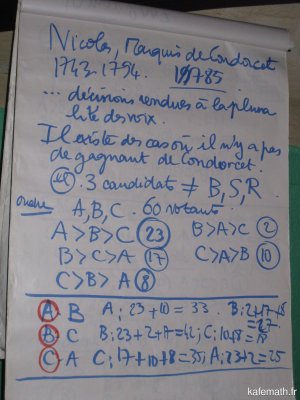 Nicolas, Marquis de Condorcet
1743-1794. 1785
... décisions rendues à la plura
lité des voix.
Il existe des cas où il n'y a pas
de gagnant de Condorcet.
3 candidats ≠ B, S, R.
A, B, C. 60 votants
A > B > C 23 B > A > C 2
B > C > A 17 C > A > B 10
C > B > A 8
A B A; 23 + 10 = 33. B: 2+17+8
= 27
B C B: 23 + 2 + 17 = 42; C: 10+8 = 18
C A C: 17 + 10 + 8 = 35; A: 23+2 = 25
kafemath.fr